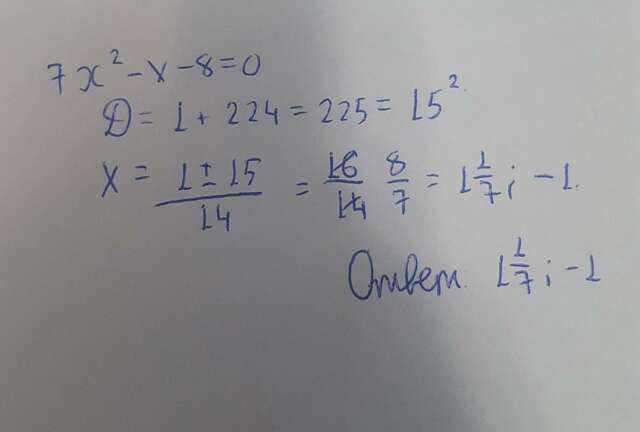 7x² - x - 8 = 0
D = 1 + 224 = 225 = 15².
x = (1 ± 15)/14 = 16/14 8/7 = 1 1/7; -1.
Ответ. 1 1/7; -1